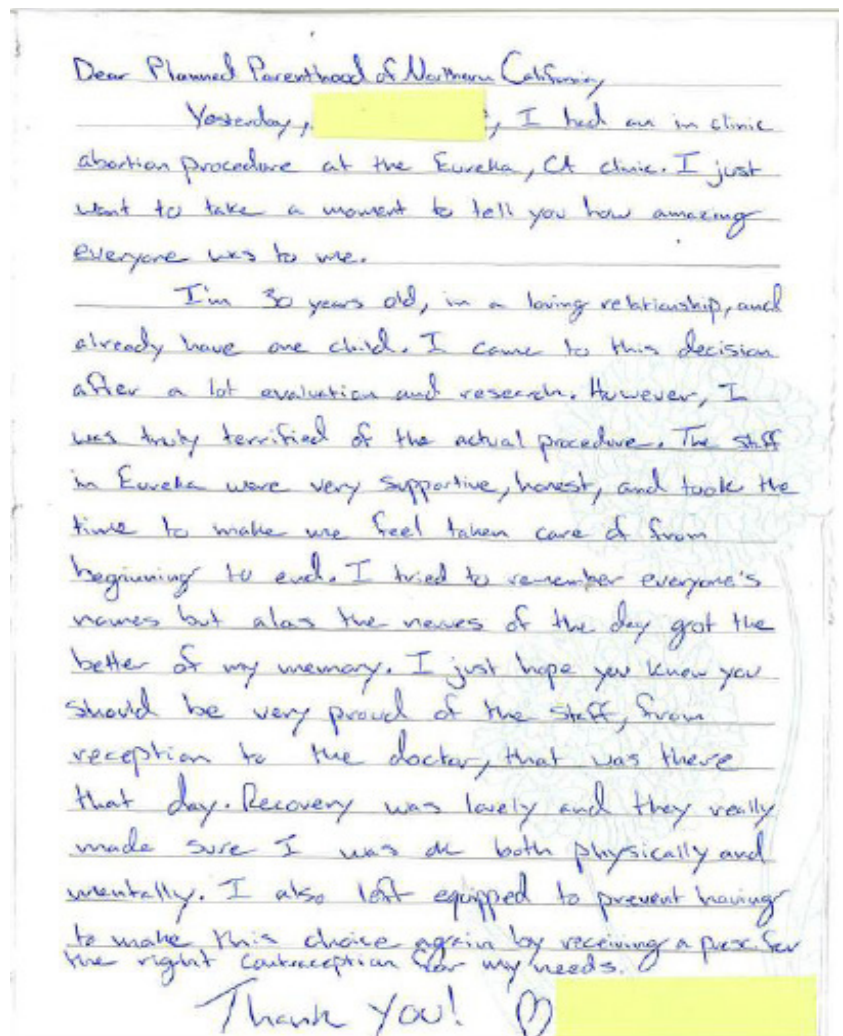 Dear Planned Parenthood of Northern California,
Yesterday, , I had an in clinic
abortion procedure at the Eureka, CA clinic. I just
want to take a moment to tell you how amazing
everyone was to me.
I'm 30 years old, in a loving relationship, and
already have one child. I came to this decision
after a lot evaluation and research. However, I
was truly terrified of the actual procedure. The staff
in Eureka were very supportive, honest, and took the
time to make me feel taken care of from
beginning to end. I tried to remember everyone's
names but alas the nerves of the day got the
better of my memory. I just hope you know you
should be very proud of the staff, from
reception to the doctor, that was there
that day. Recovery was lovely and they really
made sure I was ok both physically and
mentally. I also left equipped to prevent having
to make this choice again by receiving a presc. for
the right contraception for my needs.
Thank You! ♡